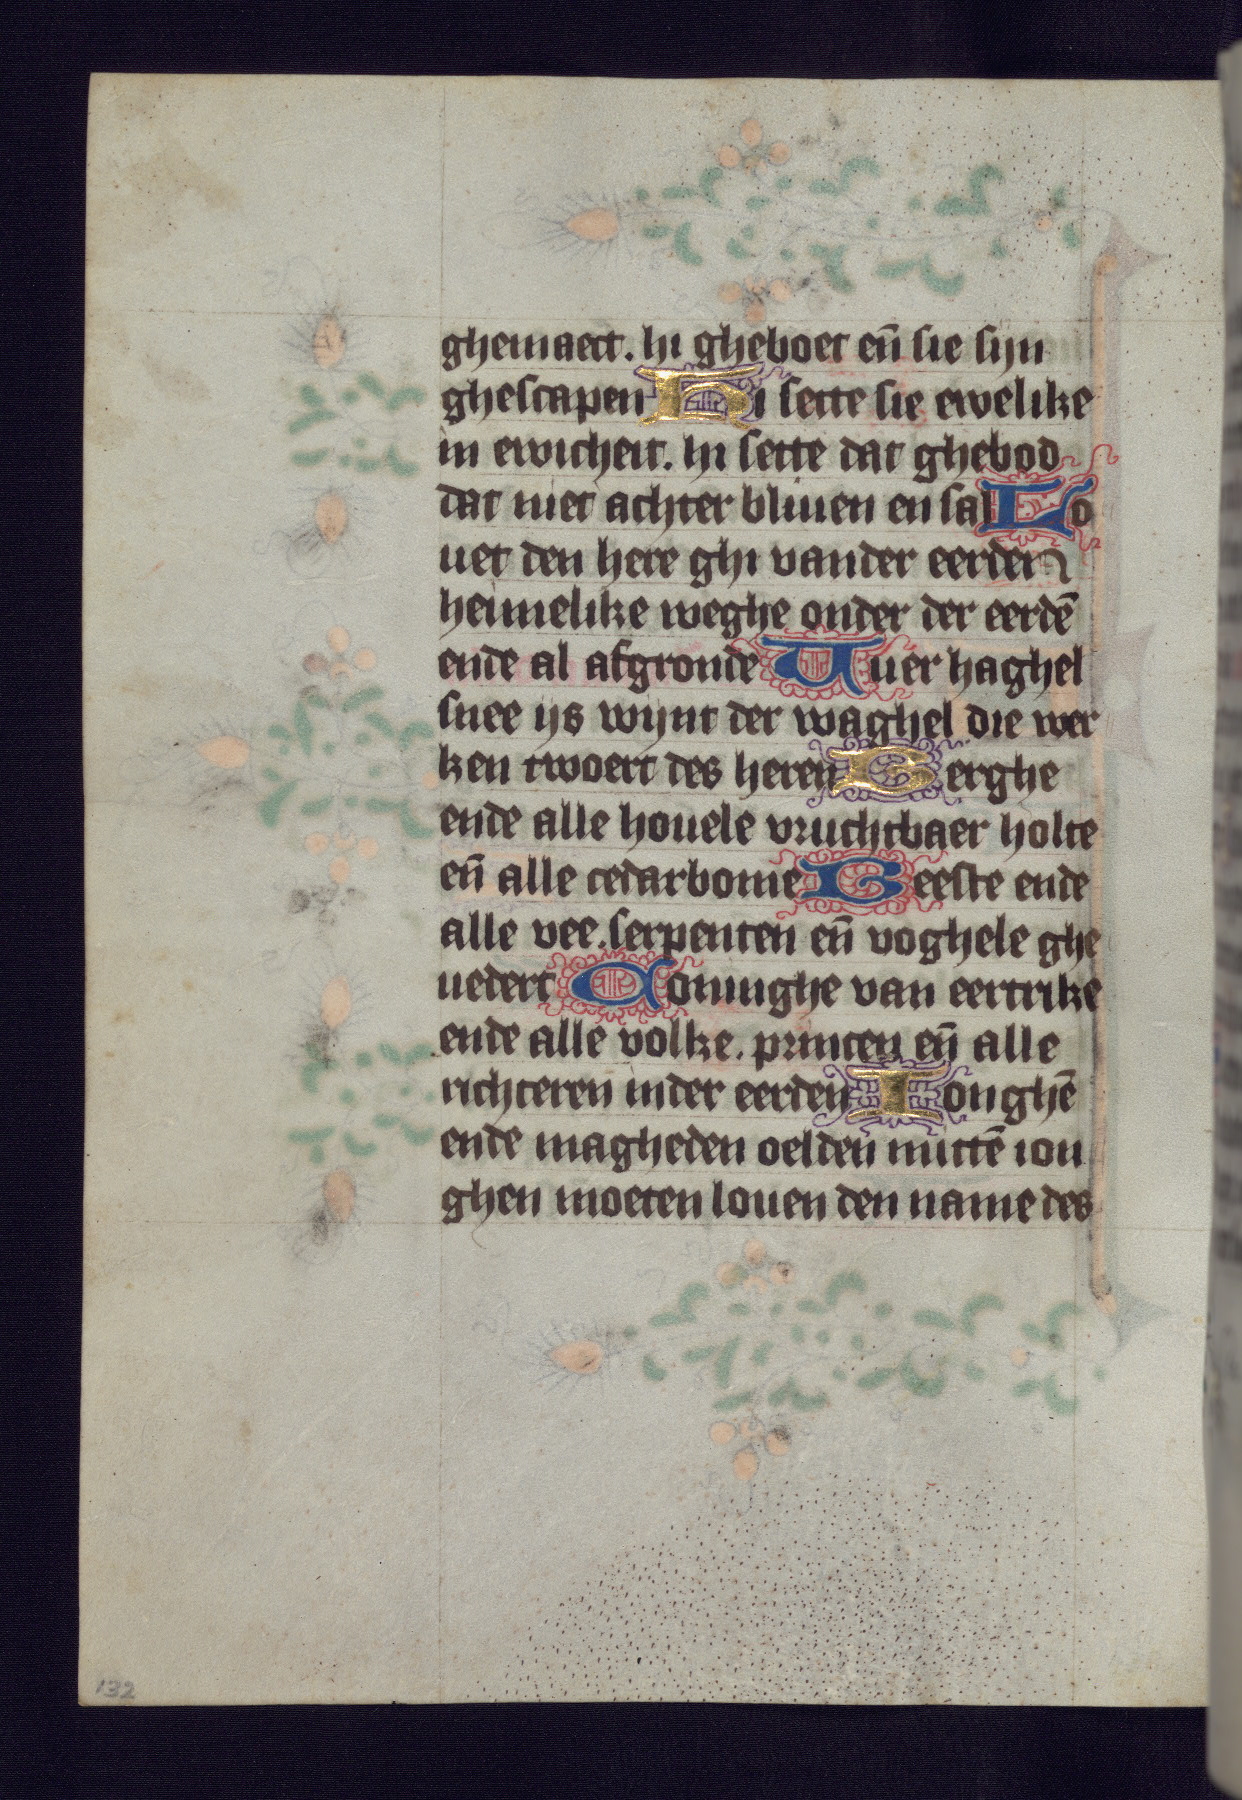 ghemaect. hi gheboet en̄ sie sijn
ghescapen Hi sette sie ewelike
in ewicheit. hi sette dat ghebod
dat niet achter bliuen en sal Lo
uet den here ghi vander eerden
heimelike weghe onder der eerdē
ende al afgronde Vuer haghel
snee ijs wijnt der waghel die wer
ken twoert des heren Berghe
ende alle houele vruchtbaer holte
en̄ alle cedarbome Beeste ende
alle vee. serpenten en̄ voghele ghe
uedert Coninghe van eertrike
ende alle volke. princen en̄ alle
richteren inder eerden Ionghē
ende magheden oelden mittē ion
ghen moeten louen den name des
132